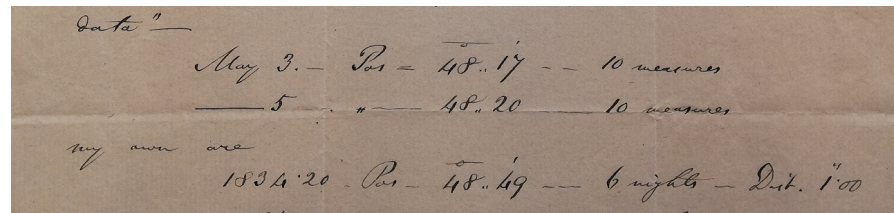 data" —
May 3. — Pos = 48°.. 17' — — 10 measures
—— 5 . " —— 48.. 20 —— 10 measures
my own are
1834.20 - Pos - 48°.. 49' — — 6 nights — Dist. 1".00